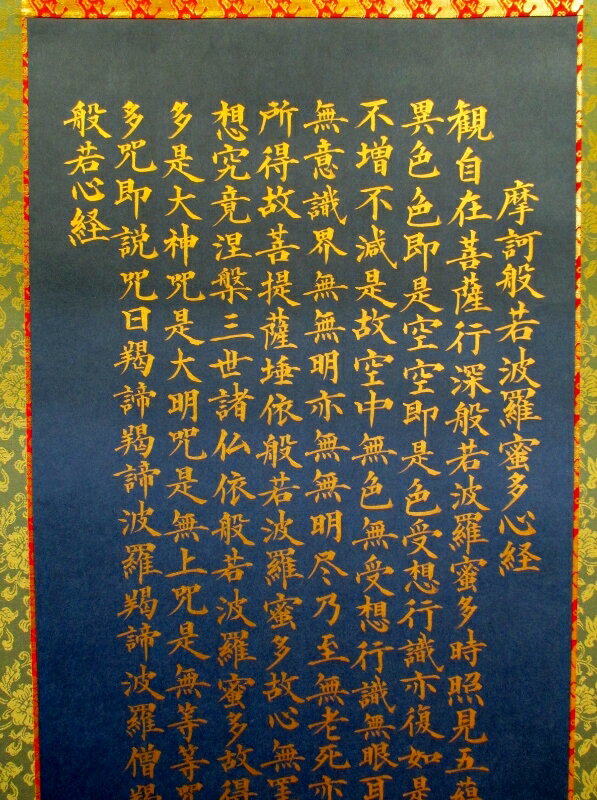 摩訶般若波羅蜜多心経
観自在菩薩行深般若波羅蜜多時照見五蘊
異色色即是空空即是色受想行識亦復如是
不増不減是故空中無色無受想行識無眼耳
無意識界無無明亦無無明尽乃至無老死亦
所得故菩提薩埵依般若波羅蜜多故心無罣
想究竟涅槃三世諸仏依般若波羅蜜多故得
多是大神咒是大明咒是無上咒是無等等咒
多咒即説咒曰羯諦羯諦波羅羯諦波羅僧羯
般若心経